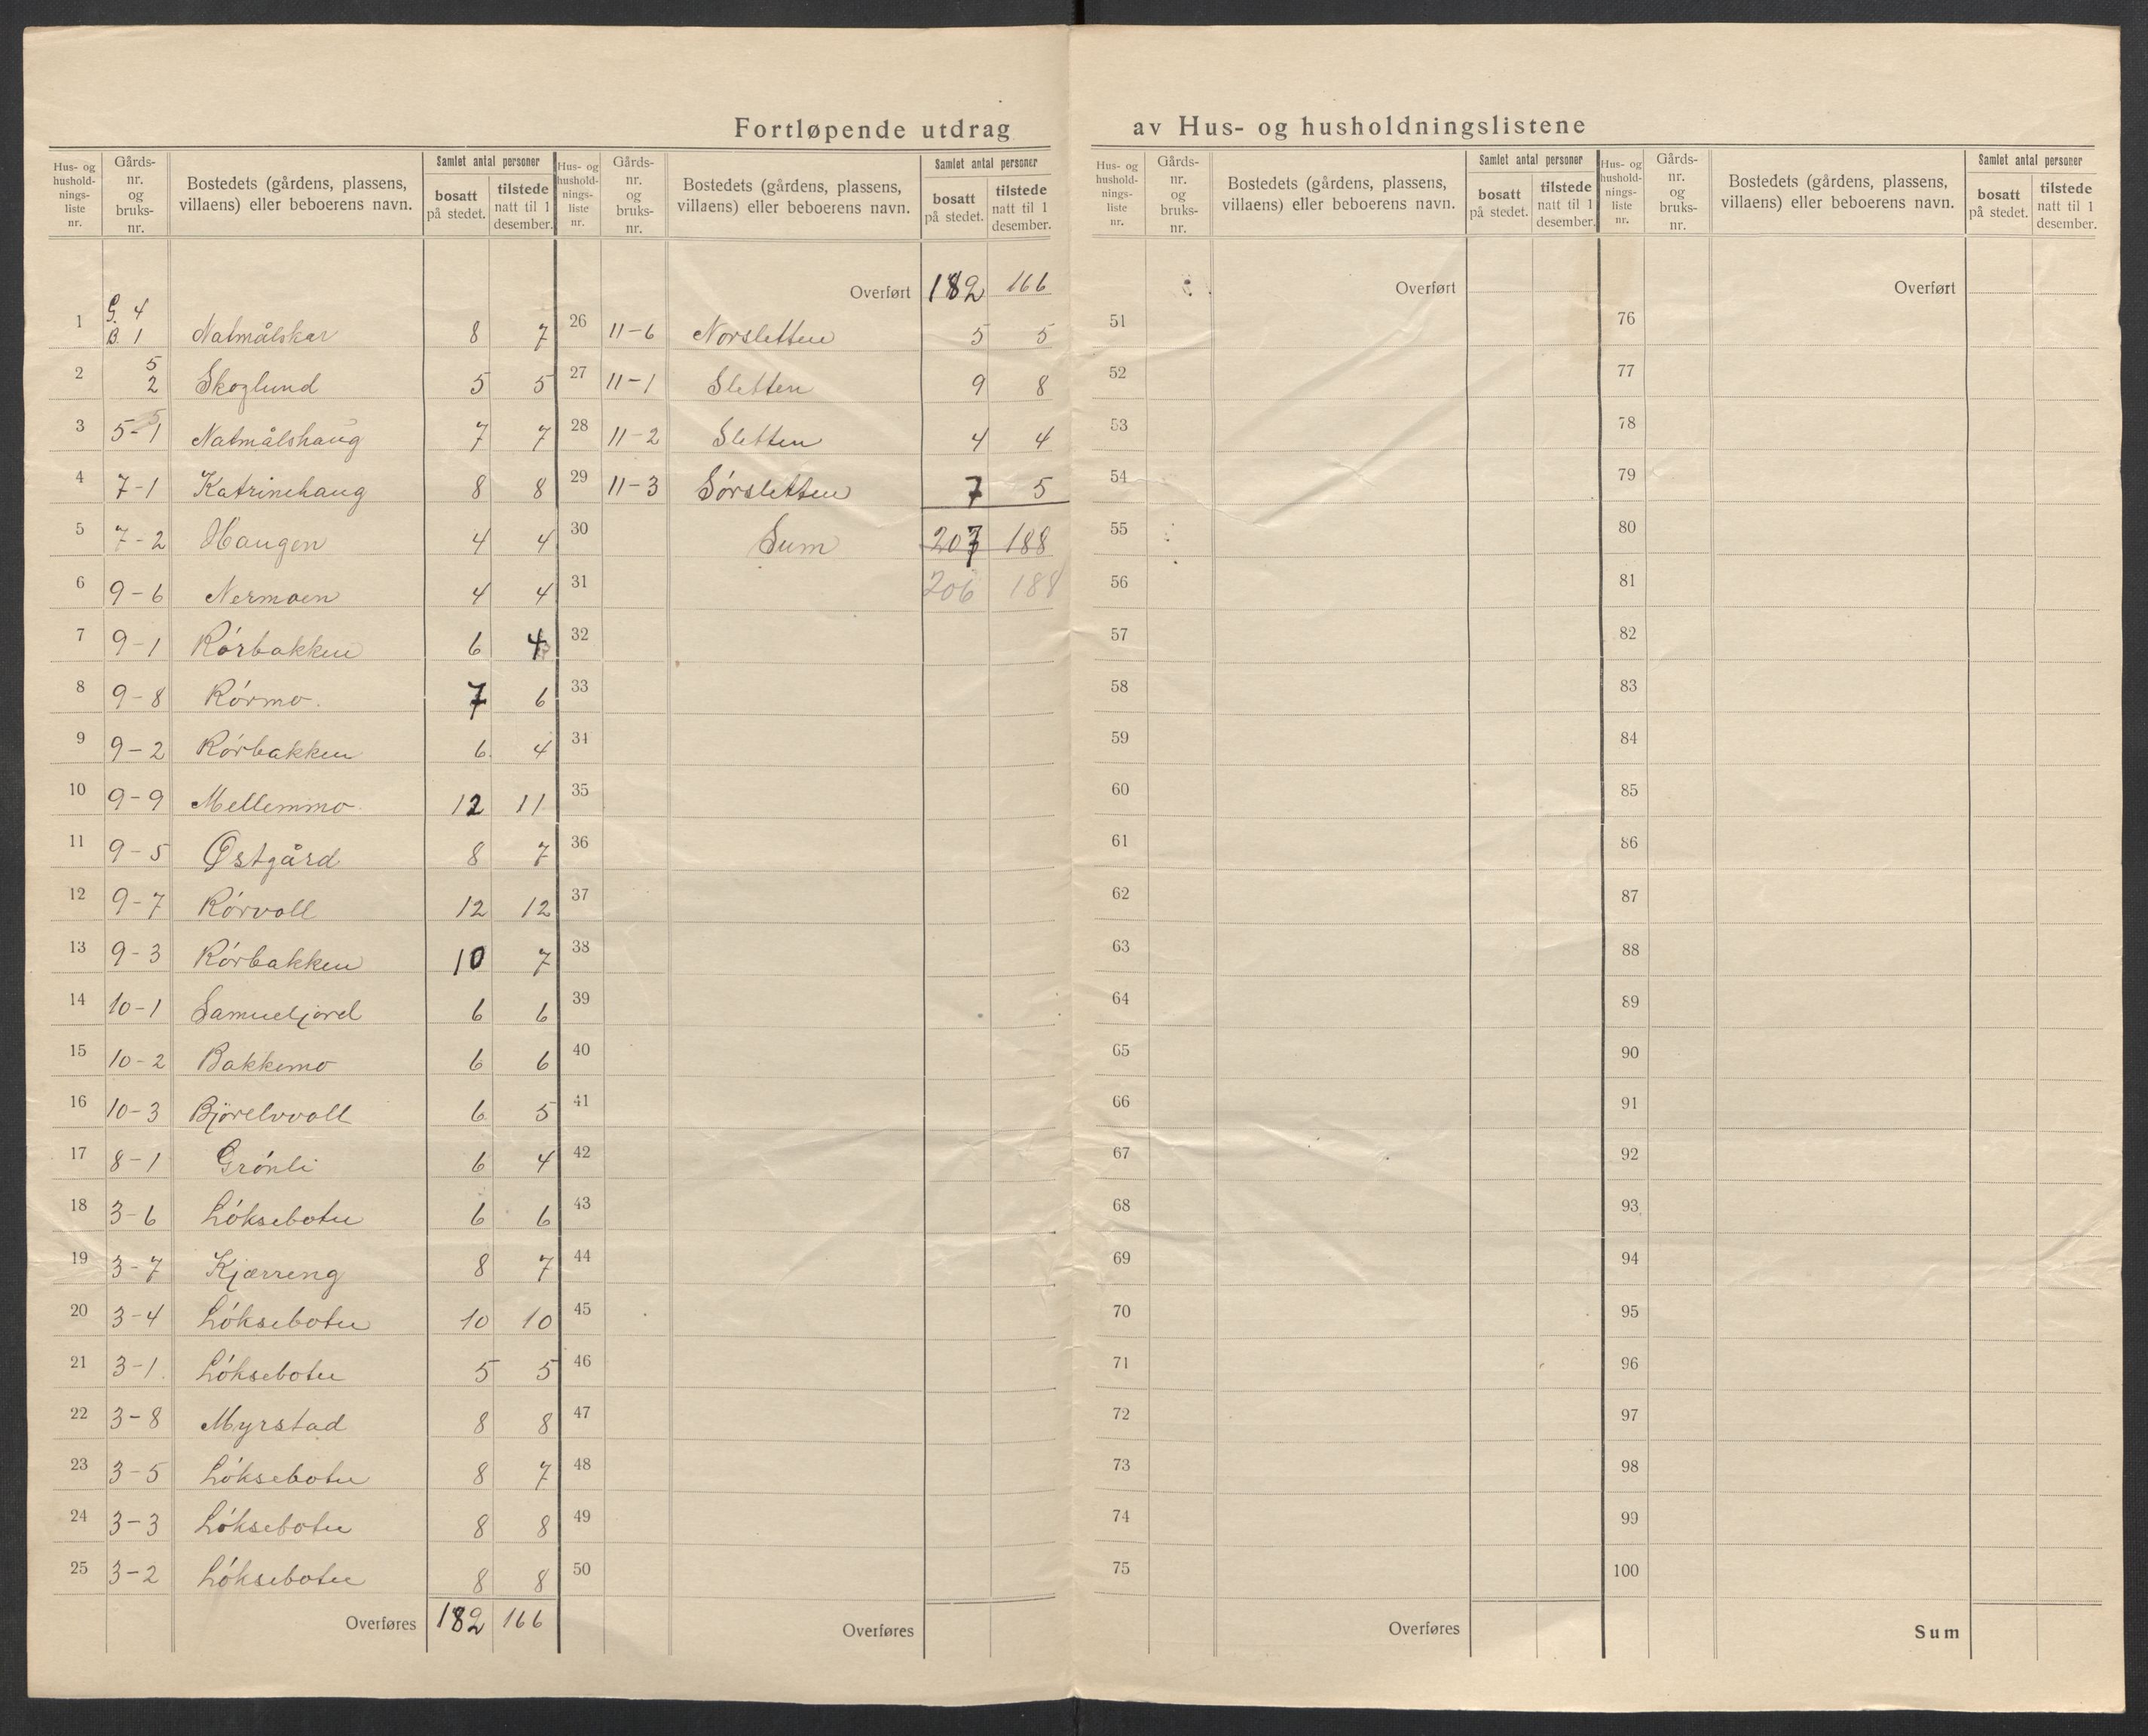 Fortløpende utdrag av Hus- og husholdningslistene
Hus- og husholdnings-liste nr. | Gårds-nr. og bruks-nr. | Bostedets (gårdens, plassens, villaens) eller beboerens navn. | Samlet antal personer bosatt på stedet. | tilstede natt til 1 desember.
1 | G. 4 B. 1 | Natmålskar | 8 | 7
2 | 5 2 | Skoglund | 5 | 5
3 | 5-1 | Natmålshaug | 7 | 7
4 | 7-1 | Katrinehaug | 8 | 8
5 | 7-2 | Haugen | 4 | 4
6 | 9-6 | Nermoen | 4 | 4
7 | 9-1 | Rórbakken | 6 | 4
8 | 9-8 | Rórmo. | 7 | 6
9 | 9-2 | Rórbakken | 6 | 4
10 | 9-9 | Mellemmo | 12 | 11
11 | 9-5 | Østgård | 8 | 7
12 | 9-7 | Rórvoll | 12 | 12
13 | 9-3 | Rórbakken | 10 | 7
14 | 10-1 | Samueljord | 6 | 6
15 | 10-2 | Bakkemo | 6 | 6
16 | 10-3 | Bjórelvvoll | 6 | 5
17 | 8-1 | Grónli | 6 | 4
18 | 3-6 | Lóksebotn | 6 | 6
19 | 3-7 | Kjærreng | 8 | 7
20 | 3-4 | Lóksebotn | 10 | 10
21 | 3-1. | Lóksebotn | 5 | 5
22 | 3-8 | Myrstad | 8 | 8
23 | 3-5 | Lóksebotn | 8 | 7
24 | 3-3 | Lóksebotn | 8 | 8
25 | 3-2 | Lóksebotn | 8 | 8
Overføres | 182 | 166
Hus- og husholdnings-liste nr. | Gårds-nr. og bruks-nr. | Bostedets (gårdens, plassens, villaens) eller beboerens navn. | Samlet antal personer bosatt på stedet. | tilstede natt til 1 desember.
Overført | 182 | 166
26 | 11-6 | Norsletten | 5 | 5
27 | 11-1 | Sletten | 9 | 8
28 | 11-2 | Sletten | 4 | 4
29 | 11-3 | Sórsletten | 7 | 5
30 | Sum | 207 | 188
31 | 206 | 188
32
33
34
35
36
37
38
39
40
41
42
43
44
45
46
47
48
49
50
Overføres
Hus- og husholdnings-liste nr. | Gårds-nr. og bruks-nr. | Bostedets (gårdens, plassens, villaens) eller beboerens navn. | Samlet antal personer bosatt på stedet. | tilstede natt til 1 desember.
Overført
51
52
53
54
55
56
57
58
59
60
61
62
63
64
65
66
67
68
69
70
71
72
73
74
75
Overføres
Hus- og husholdnings-liste nr. | Gårds-nr. og bruks-nr. | Bostedets (gårdens, plassens, villaens) eller beboerens navn. | Samlet antal personer bosatt på stedet. | tilstede natt til 1 desember.
Overført
76
77
78
79
80
81
82
83
84
85
86
87
88
89
90
91
92
93
94
95
96
97
98
99
100
Sum